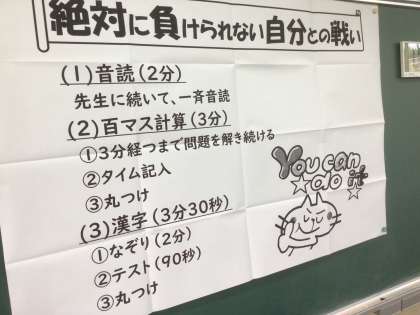 絶対に負けられない自分との戦い
(1)音読(2分)
先生に続いて、一斉音読
(2)百マス計算(3分)
①3分経つまで問題を解き続ける
②タイム記入
③丸つけ
(3)漢字(3分30秒)
①なぞり(2分)
②テスト(90秒)
③丸つけ
You can
do it